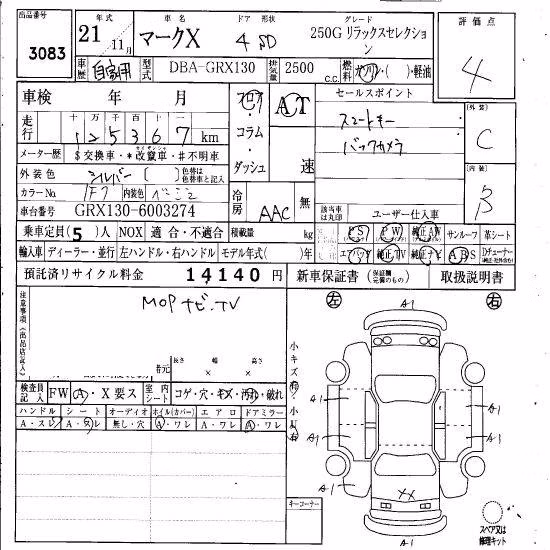 出品番号 年式 車名 ドア 形状 グレード 評価点
3083 21年 11月 マークX 4 SD 250G リラックスセレクション 4
車歴 自家用 型式 DBA-GRX130 排気量 2500 c.c. 燃料 ガソリン・( )・軽油
車検 年 月 フロア・コラム・ダッシュ AT 速 セールスポイント
走行 十 万 千 百 十 一
125367 km スマートキー
バックカメラ
メーター歴 $ 交換車・* 改竄車・# 不明車
外装 C
外装色 シルバー ( ) 色替は色替車と記入
内装 B
カラーNo 1F7 内装色 ベージュ 冷房 AAC 無
該当車は丸印 ユーザー仕入車
車台番号 GRX130-6003274
乗車定員(5)人 NOX 適合・不適合 積載量 kg PS PW 純正AW サンルーフ 革シート
輸入車 ディーラー・並行 左ハンドル・右ハンドル モデル年式( )年 エアバッグ 純正TV 純正ナビ ABS Dチューナー
預託済リサイクル料金 14140円 新車保証書 (保証欄完備のもの) 取扱説明書
注意事項(出品店記入) MOPナビ・TV
左 A1 右
長さ 幅 高さ
× ×
小キズ有・小凹有
検査員記入 FW A・X要ス 室内シート コゲ・穴・キズ・汚れ・破れ
ハンドル シート オーディオ ホイル(カバー) エアロ ドアミラー
A・スレ A・スレ 無し・穴 A・ワレ A・ワレ A・ワレ
A1 A1
A1 A1
A1 A1
XX
キーコーナー
A1
スペア又は修理キット